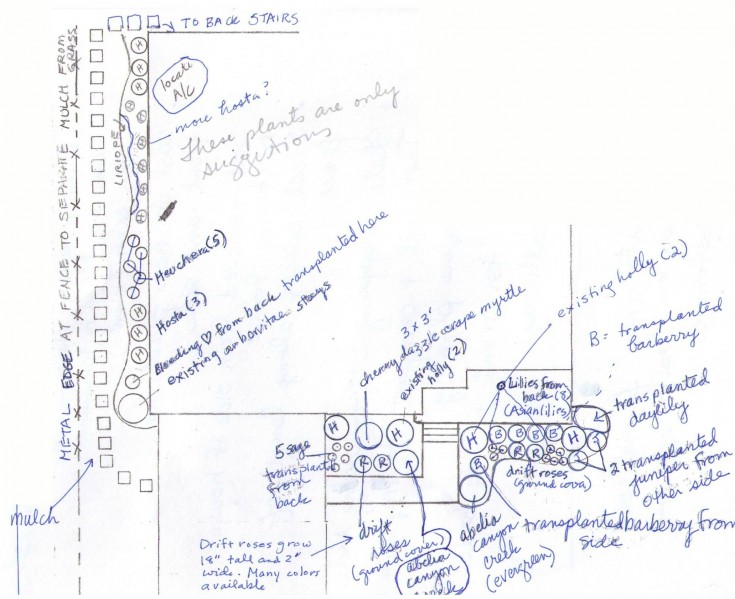 TO BACK STAIRS
METAL EDGE AT FENCE TO SEPARATE MULCH FROM
GRASS
H
H
H
locate
A/C
more hosta?
These plants are only
suggestions
LIRIOPE
Heuchera (5)
Hosta (3)
H
H
H
Bleeding ♡ from back transplanted here
existing arborvitae stays
mulch
3 x 3'
cherry dazzle crape myrtle
existing
holly (2)
existing holly (2)
B = transplanted
barberry
Lilies from
back (8)
(Asian lilies)
transplanted
daylily
H
H
R
R
5 sage
transplants
from
back
H
B
B
B
B
H
B
R
R
drift roses
(ground cover)
2 transplanted
juniper from
other side
drift
roses
(ground cover)
abelia
canyon
abelia
canyon
creek
(evergreen)
transplanted barberry from
side
Drift roses grow
18" tall and 2"
wide. Many colors
available